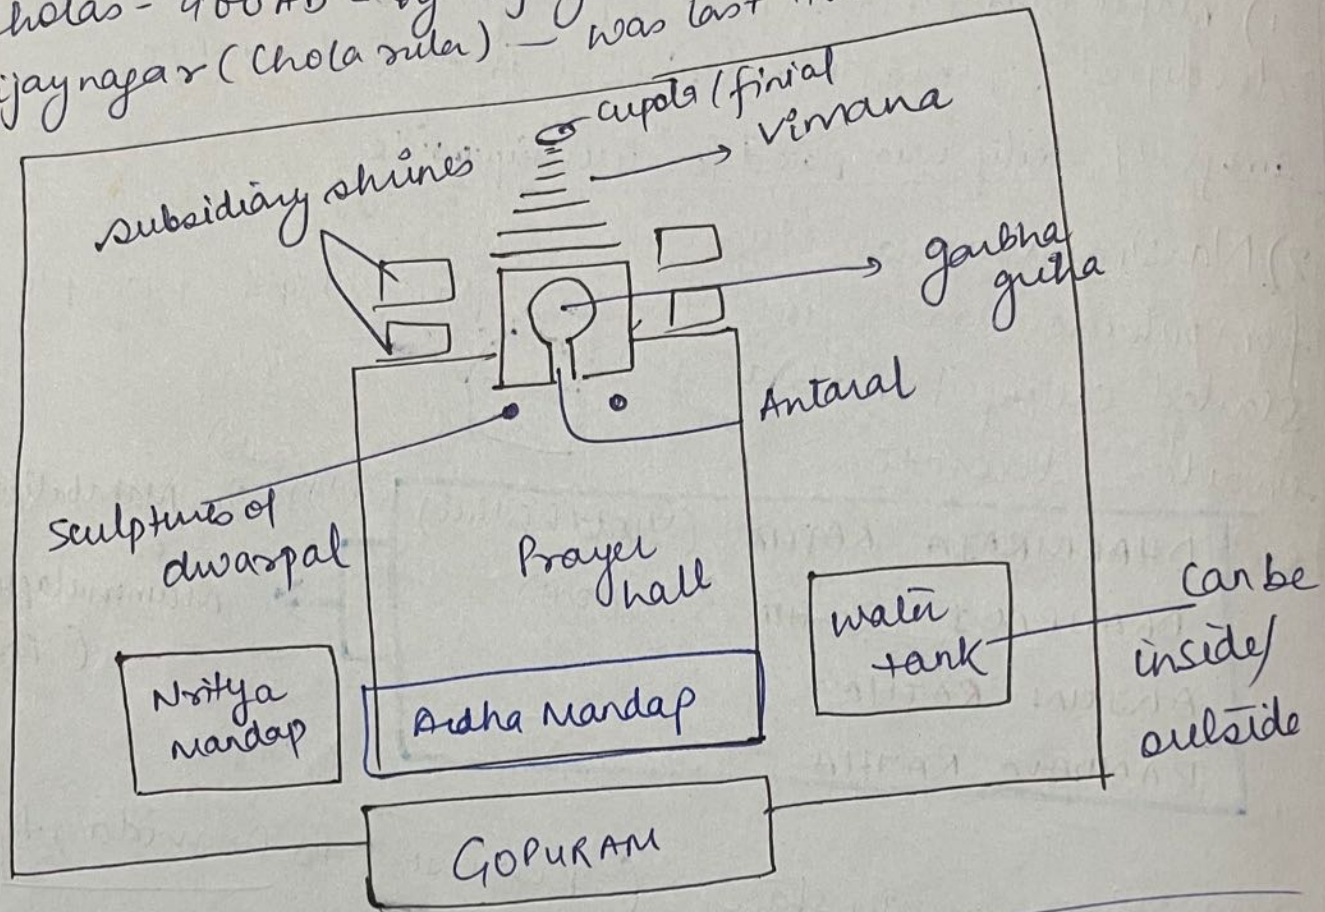 holas - 400 AD - by
ijaynagar (Chola ruler) - was last
cupola / finial
vimana
subsidiary shrines
garbha
griha
Antaral
Sculptures of
dwarpal
Prayer
hall
water
tank
can be
inside/
outside
Nritya
Mandap
Ardha Mandap
GOPURAM